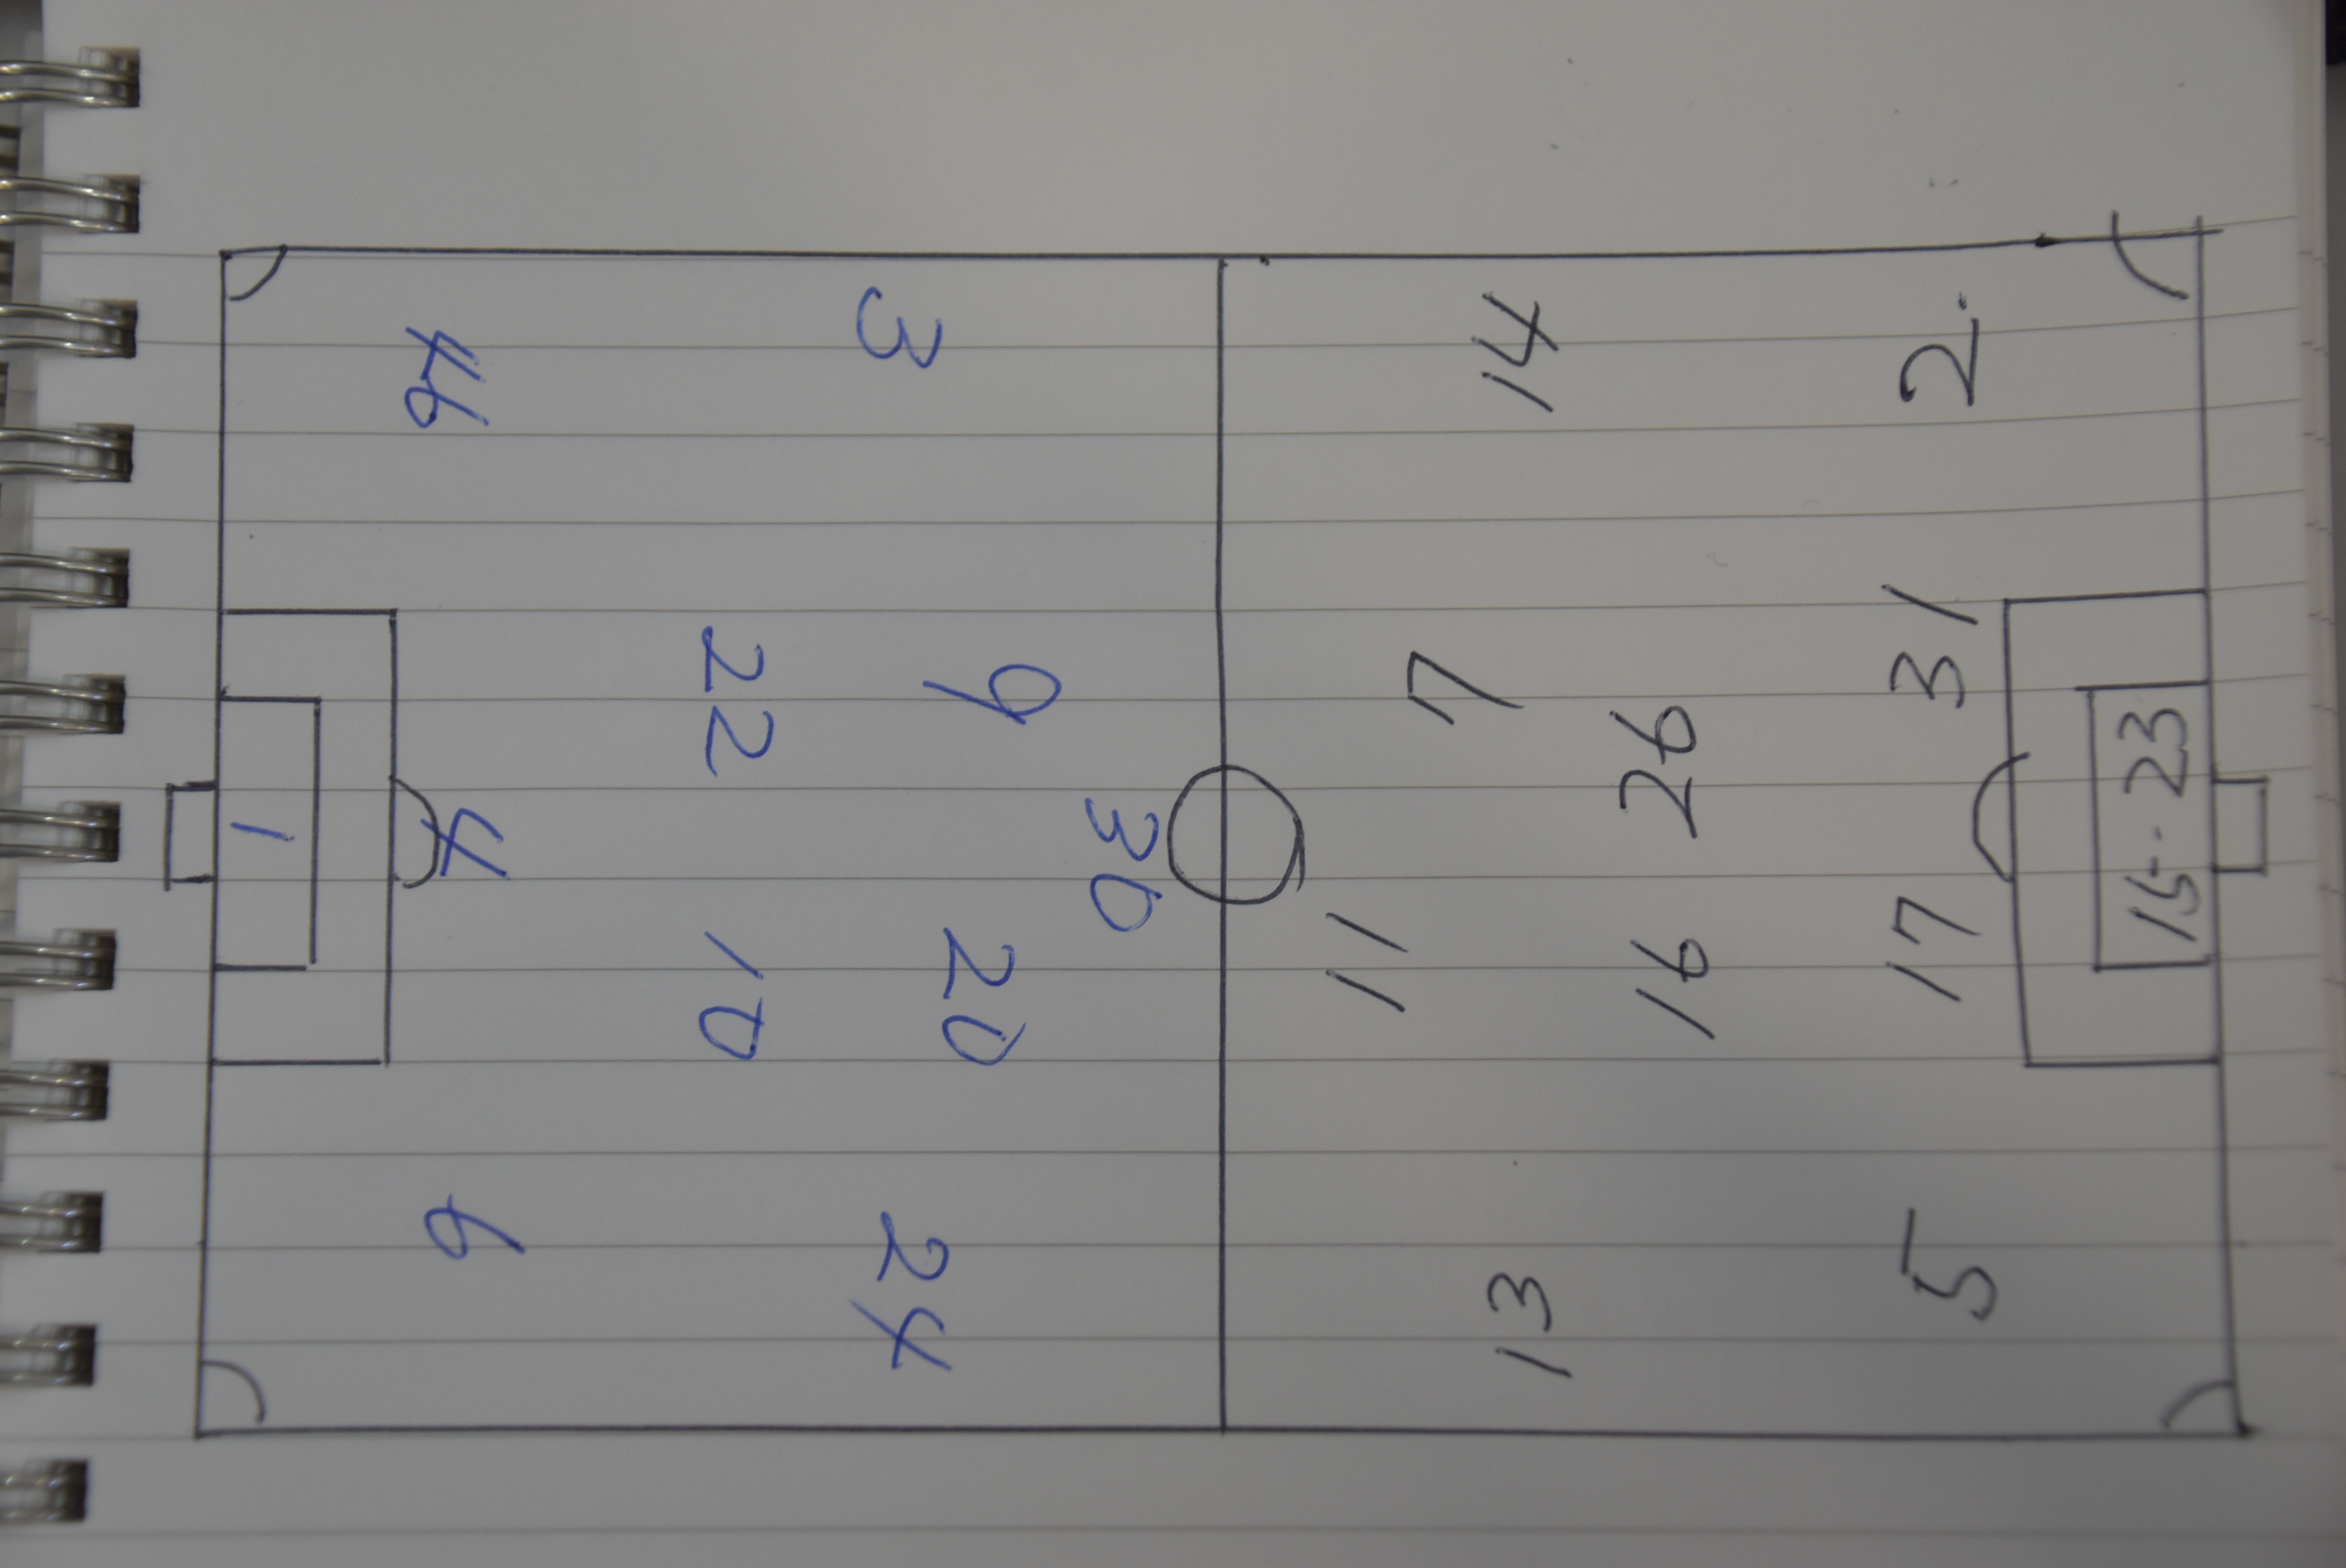 1
46 4 6
22 10
3 24
9 20
30
11 7
13 14
16 26
5 17 31 2
15 - 23